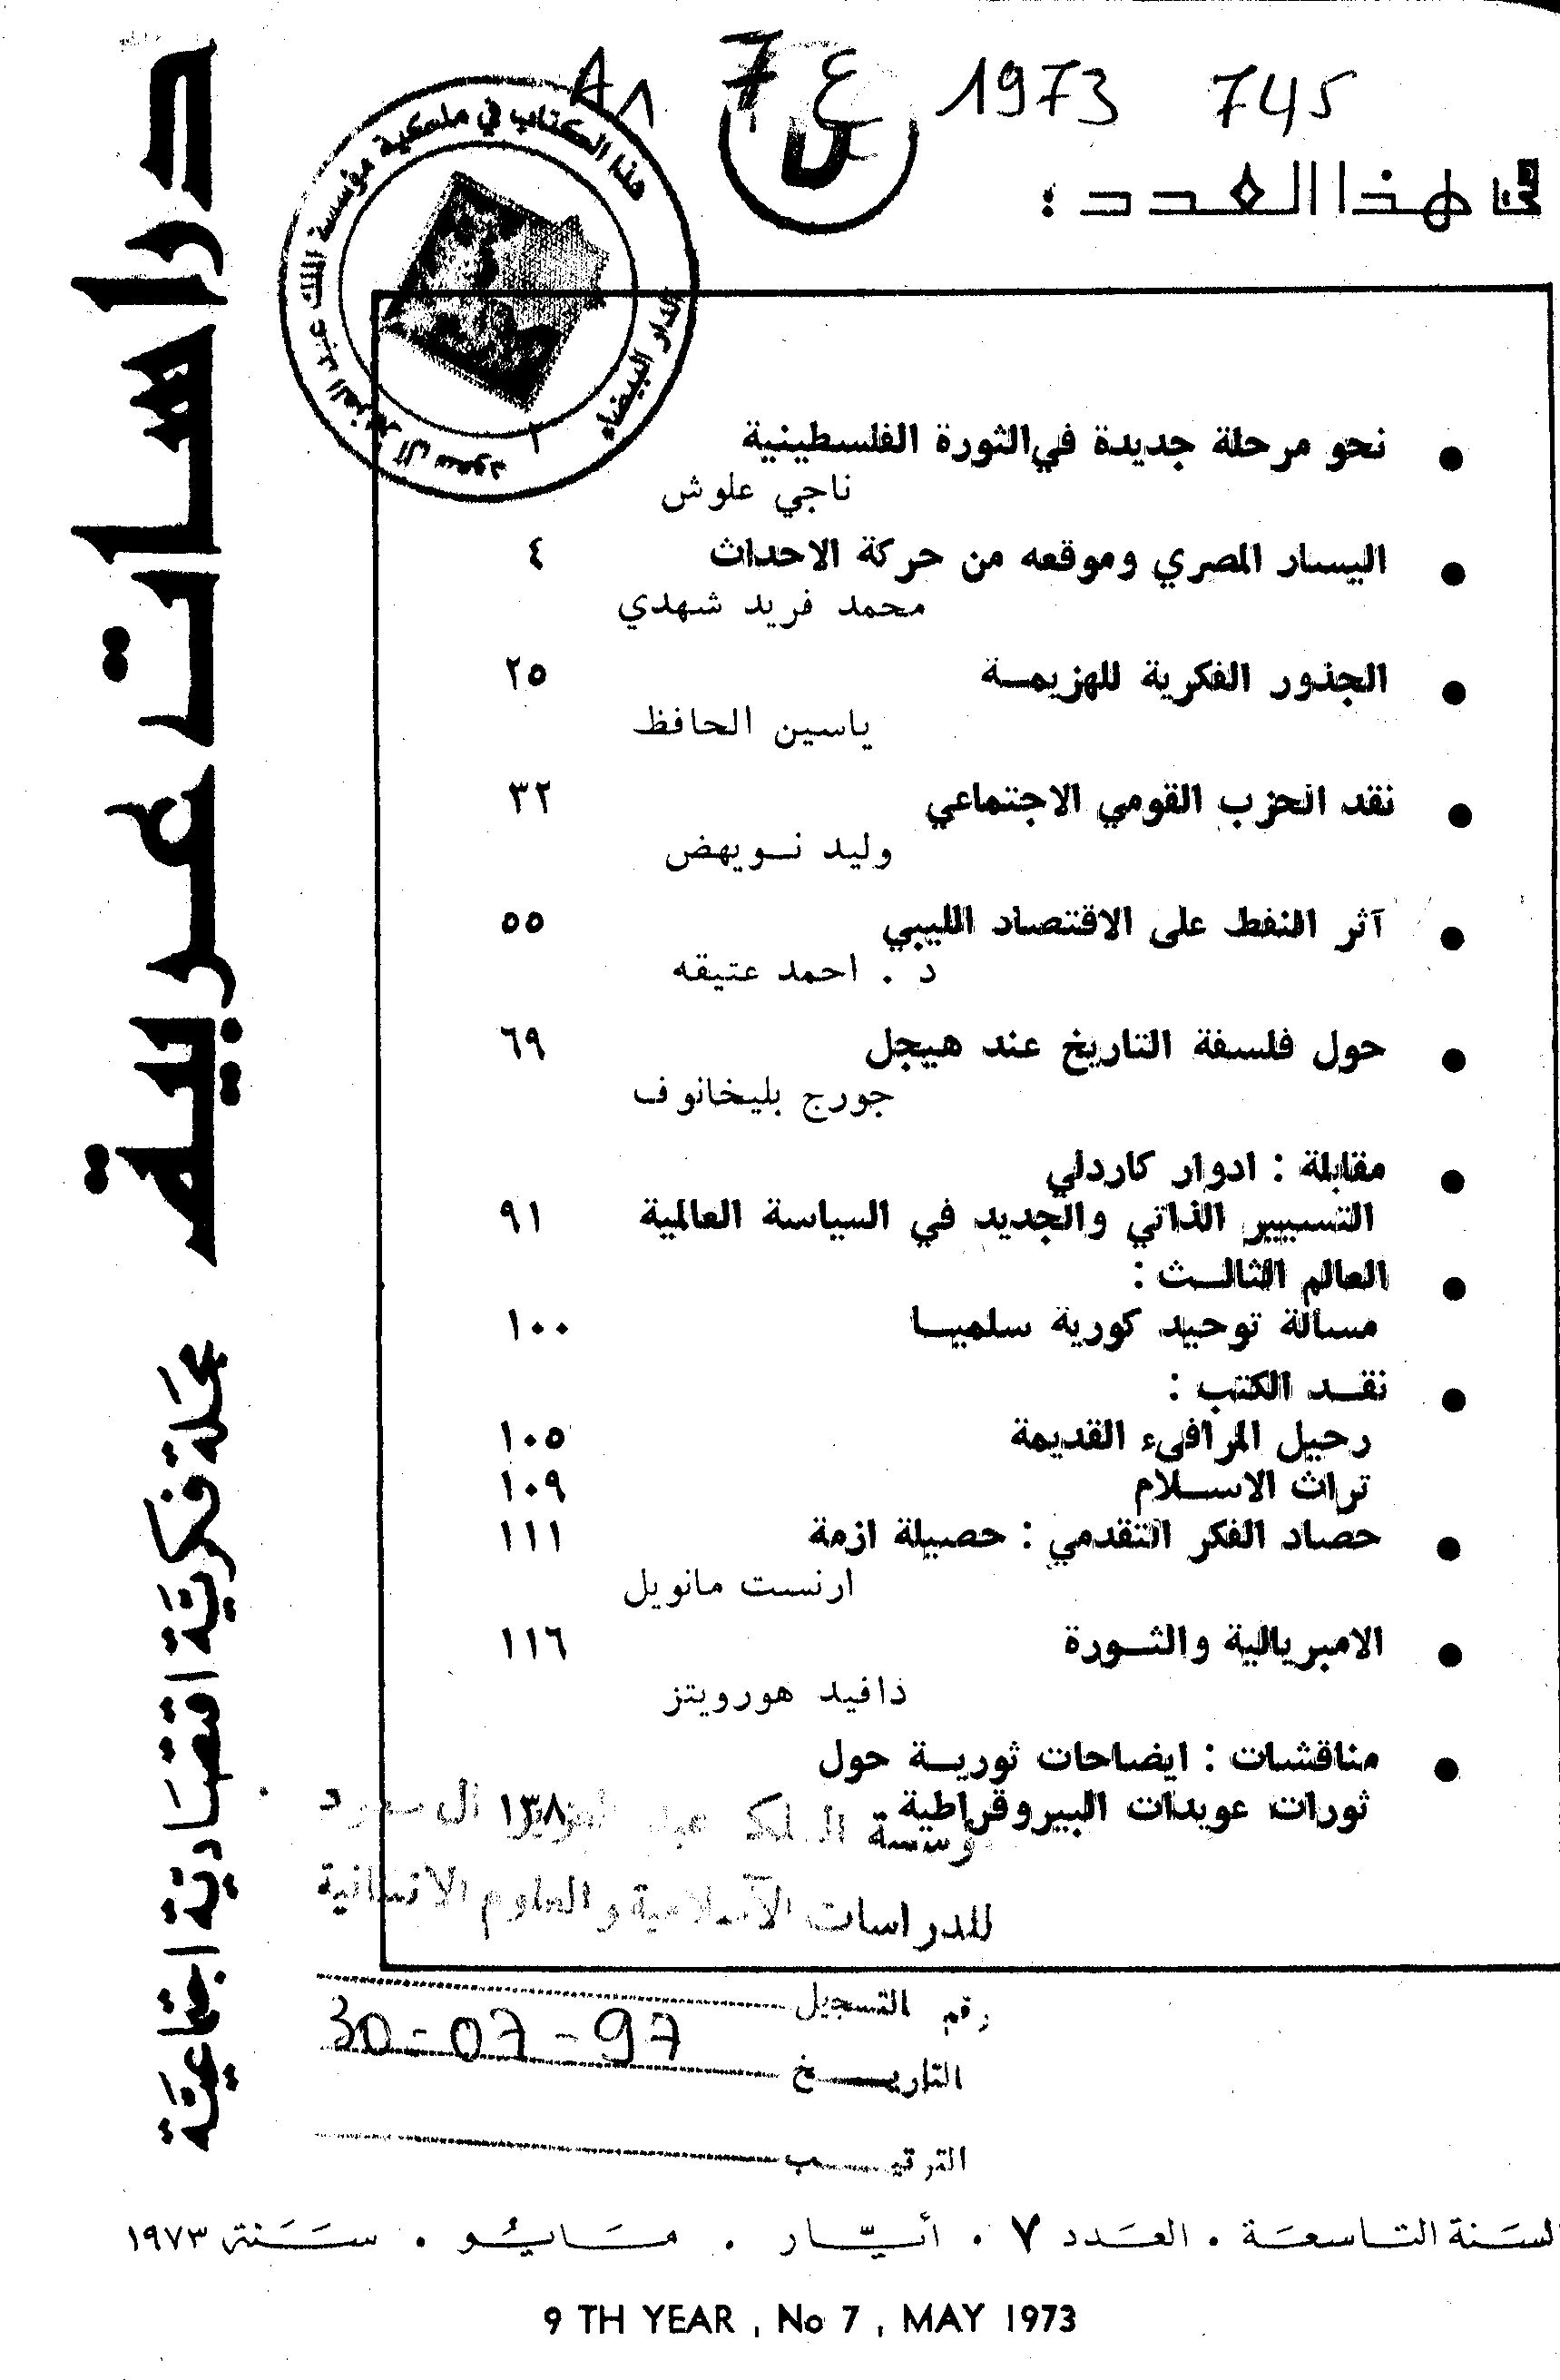 A1 7 ع 1973 745
في هذا العدد :
هذا الكتاب في ملكية مؤسسة الملك عبد العزيز آل سعود
الدار البيضاء
دراسات عربية
مجلة فكرية اقتصادية اجتماعية
● نحو مرحلة جديدة في الثورة الفلسطينية ١
ناجي علوش
● اليسار المصري وموقعه من حركة الاحداث ٤
محمد فريد شهدي
● الجذور الفكرية للهزيمــة ٢٥
ياسين الحافظ
● نقد الحزب القومي الاجتماعي ٣٢
وليد نــويهض
● آثر النفط على الاقتصاد الليبي ٥٥
د . احمد عتيقه
● حول فلسفة التاريخ عند هيجل ٦٩
جورج بليخانوف
● مقابلة : ادوار كاردلي
التسيير الذاتي والجديد في السياسة العالمية ٩١
● العالم الثالــث :
مسالة توحيد كورية سلميــا ١٠٠
● نقــد الكتب :
رحيل المرافىء القديمة ١٠٥
تراث الاســلام ١٠٩
● حصاد الفكر التقدمي : حصيلة ازمة ١١١
ارنست مانويل
● الامبريالية والثــورة ١١٦
دافيد هورويتز
● مناقشات : ايضاحات ثوريــة حول
ثورات عويدات البيروقراطية ١٣٨
مؤسسة الملك عبد العزيز آل سعود
للدراسات الاسلامية والعلوم الانسانية
رقم التسجيل
التاريــــخ 30-07-97
الترتيــــب
السَنة التــاسعَـة . العَـدد ٧ . أيــّـار . مــَـايُــو . ســَـنَة ١٩٧٣
9 TH YEAR , No 7 , MAY 1973